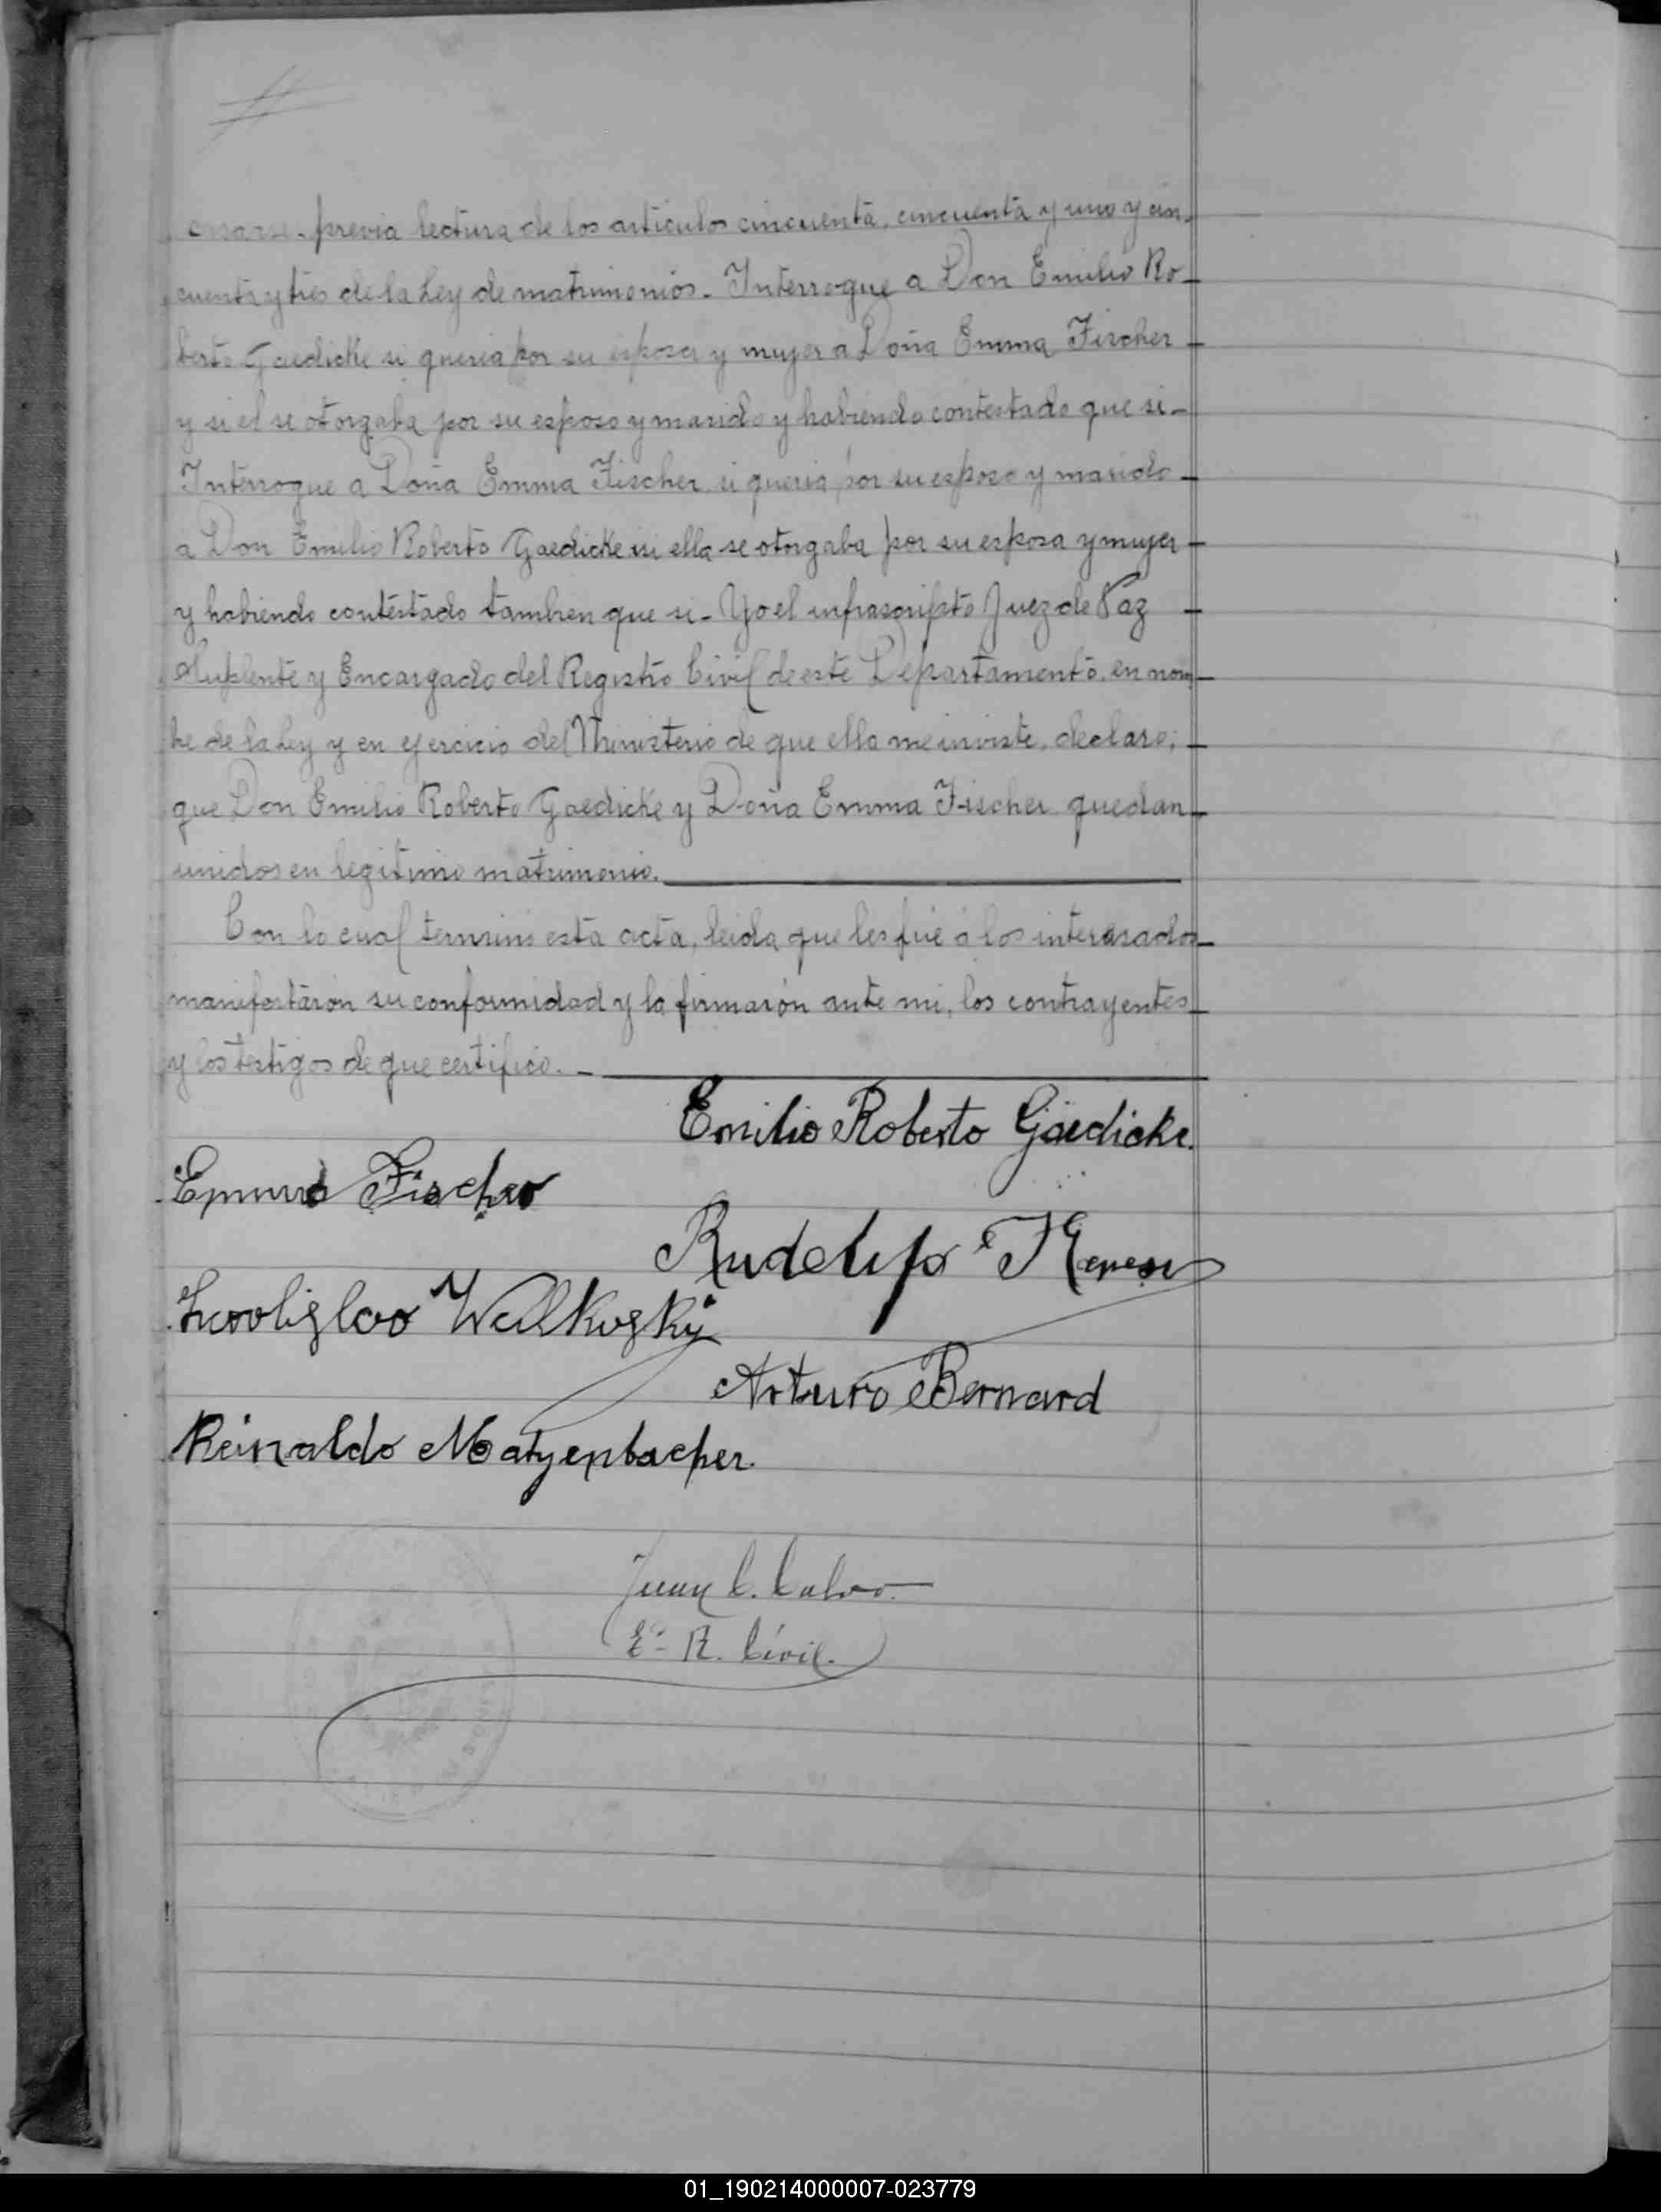 casarse. previa lectura de los artículos cincuenta, cincuenta y uno y cin-
cuenta y tres de la Ley de matrimonios. Interrogue a Don Emilio Ro-
berto Gaedicke si queria por su esposa y mujer a Doña Emma Fischer
y si el se otorgaba por su esposo y marido y habiendo contestado que si-
Interrogue a Doña Emma Fischer si queria por su esposo y marido
a Don Emilio Roberto Gaedicke si ella se otorgaba por su esposa y mujer
y habiendo contestado tambien que si- Yo el infrascripto Juez de Paz
Suplente y Encargado del Registro Civil de este Departamento, en nom
bre de la Ley y en ejercicio del Ministerio de que ella me inviste, declaro;
que Don Emilio Roberto Gaedicke y Doña Emma Fischer quedan
unidos en legitimo matrimonio.
Con lo cual terminó esta acta, leida que les fué á los interesados
manifestarón su conformidad y la firmarón ante mi, los contrayentes
y los testigos de que certifico. -
Emilio Roberto Gaedicke.
Emma Fischer
Rudolfo
Walkuski
Arturo Bernard
Reinaldo Matzenbacher.
Juan C. Calvo
E. R. Civil.
01_190214000007-023779